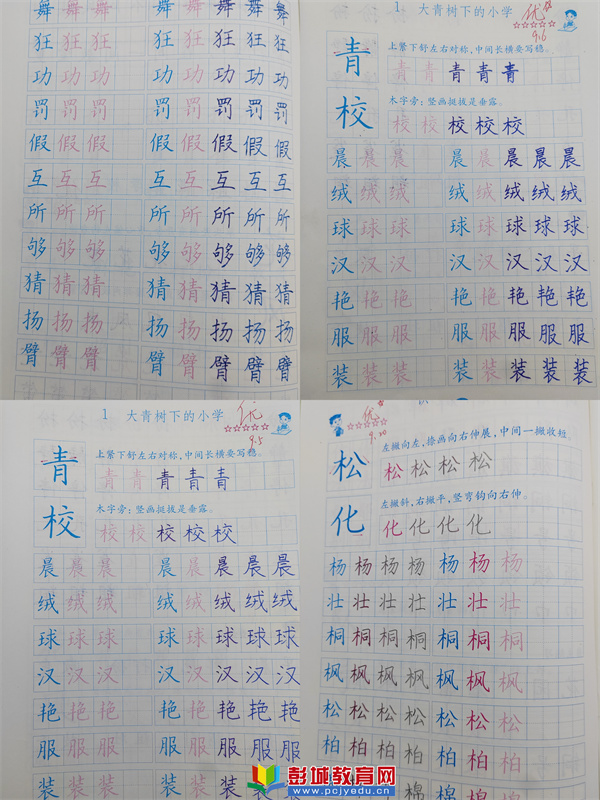 舞舞舞 舞舞舞舞舞
狂狂狂 狂狂狂狂狂
功功功 功功功功功
罚罚罚 罚罚罚罚罚
假假假 假假假假假
互互互 互互互互互
所所所 所所所所所
够够够 够够够够够
猜猜猜 猜猜猜猜猜
扬扬扬 扬扬扬扬扬
臂臂臂 臂臂臂臂臂
1 大青树下的小学 优
9.6
上紧下舒左右对称,中间长横要写稳。
青 青青青青青
木字旁:竖画挺拔是垂露。
校 校校校校校
晨晨晨 晨晨晨晨晨
绒绒绒 绒绒绒绒绒
球球球 球球球球球
汉汉汉 汉汉汉汉汉
艳艳艳 艳艳艳艳艳
服服服 服服服服服
装装装 装装装装装
1 大青树下的小学 优
9.5
上紧下舒左右对称,中间长横要写稳。
青 青青青青青
木字旁:竖画挺拔是垂露。
校 校校校校校
晨晨晨 晨晨晨晨晨
绒绒绒 绒绒绒绒绒
球球球 球球球球球
汉汉汉 汉汉汉汉汉
艳艳艳 艳艳艳艳艳
服服服 服服服服服
装装装 装装装装装
优
9.10
左撇向左,捺画向右伸展,中间一撇收短。
松 松松松松
左撇斜,右撇平,竖弯钩向右伸。
化 化化化化
杨杨杨杨杨杨杨
壮壮壮壮壮壮壮
桐桐桐桐桐桐桐
枫枫枫枫枫枫枫
松松松松松松松
柏柏柏柏柏柏柏
棉棉棉
彭城教育网
www.pcjyedu.cn